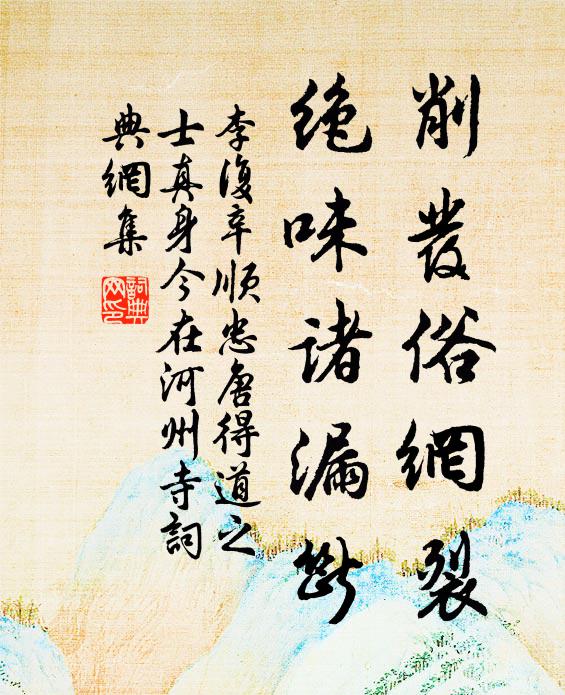 削發俗網裂
絶味諸漏斷
李復辛順忠唐得道之
士真身今在河州寺詞
典網集
詞典
网印